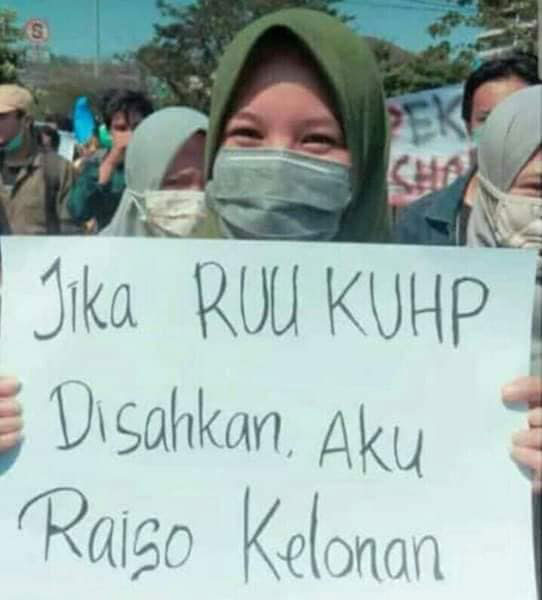 Jika RUU KUHP
Disahkan, Aku
Raiso Kelonan